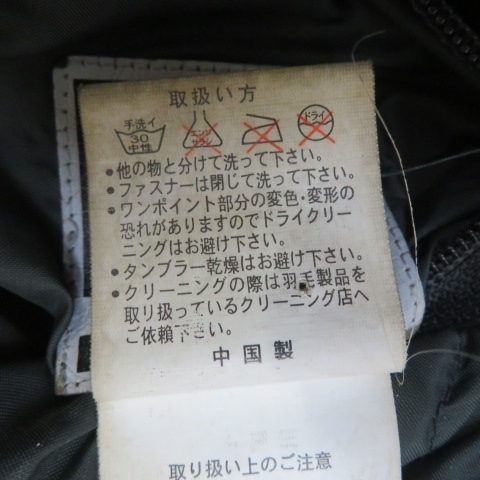 取扱い方
手洗イ
30
中性
エンソ
サラシ
ドライ
・他の物と分けて洗って下さい。
・ファスナーは閉じて洗って下さい。
・ワンポイント部分の変色・変形の
恐れがありますのでドライクリー
ニングはお避け下さい。
・タンブラー乾燥はお避け下さい。
・クリーニングの際は羽毛製品を
取り扱っているクリーニング店へ
ご依頼下さい。
中国製
取り扱い上のご注意